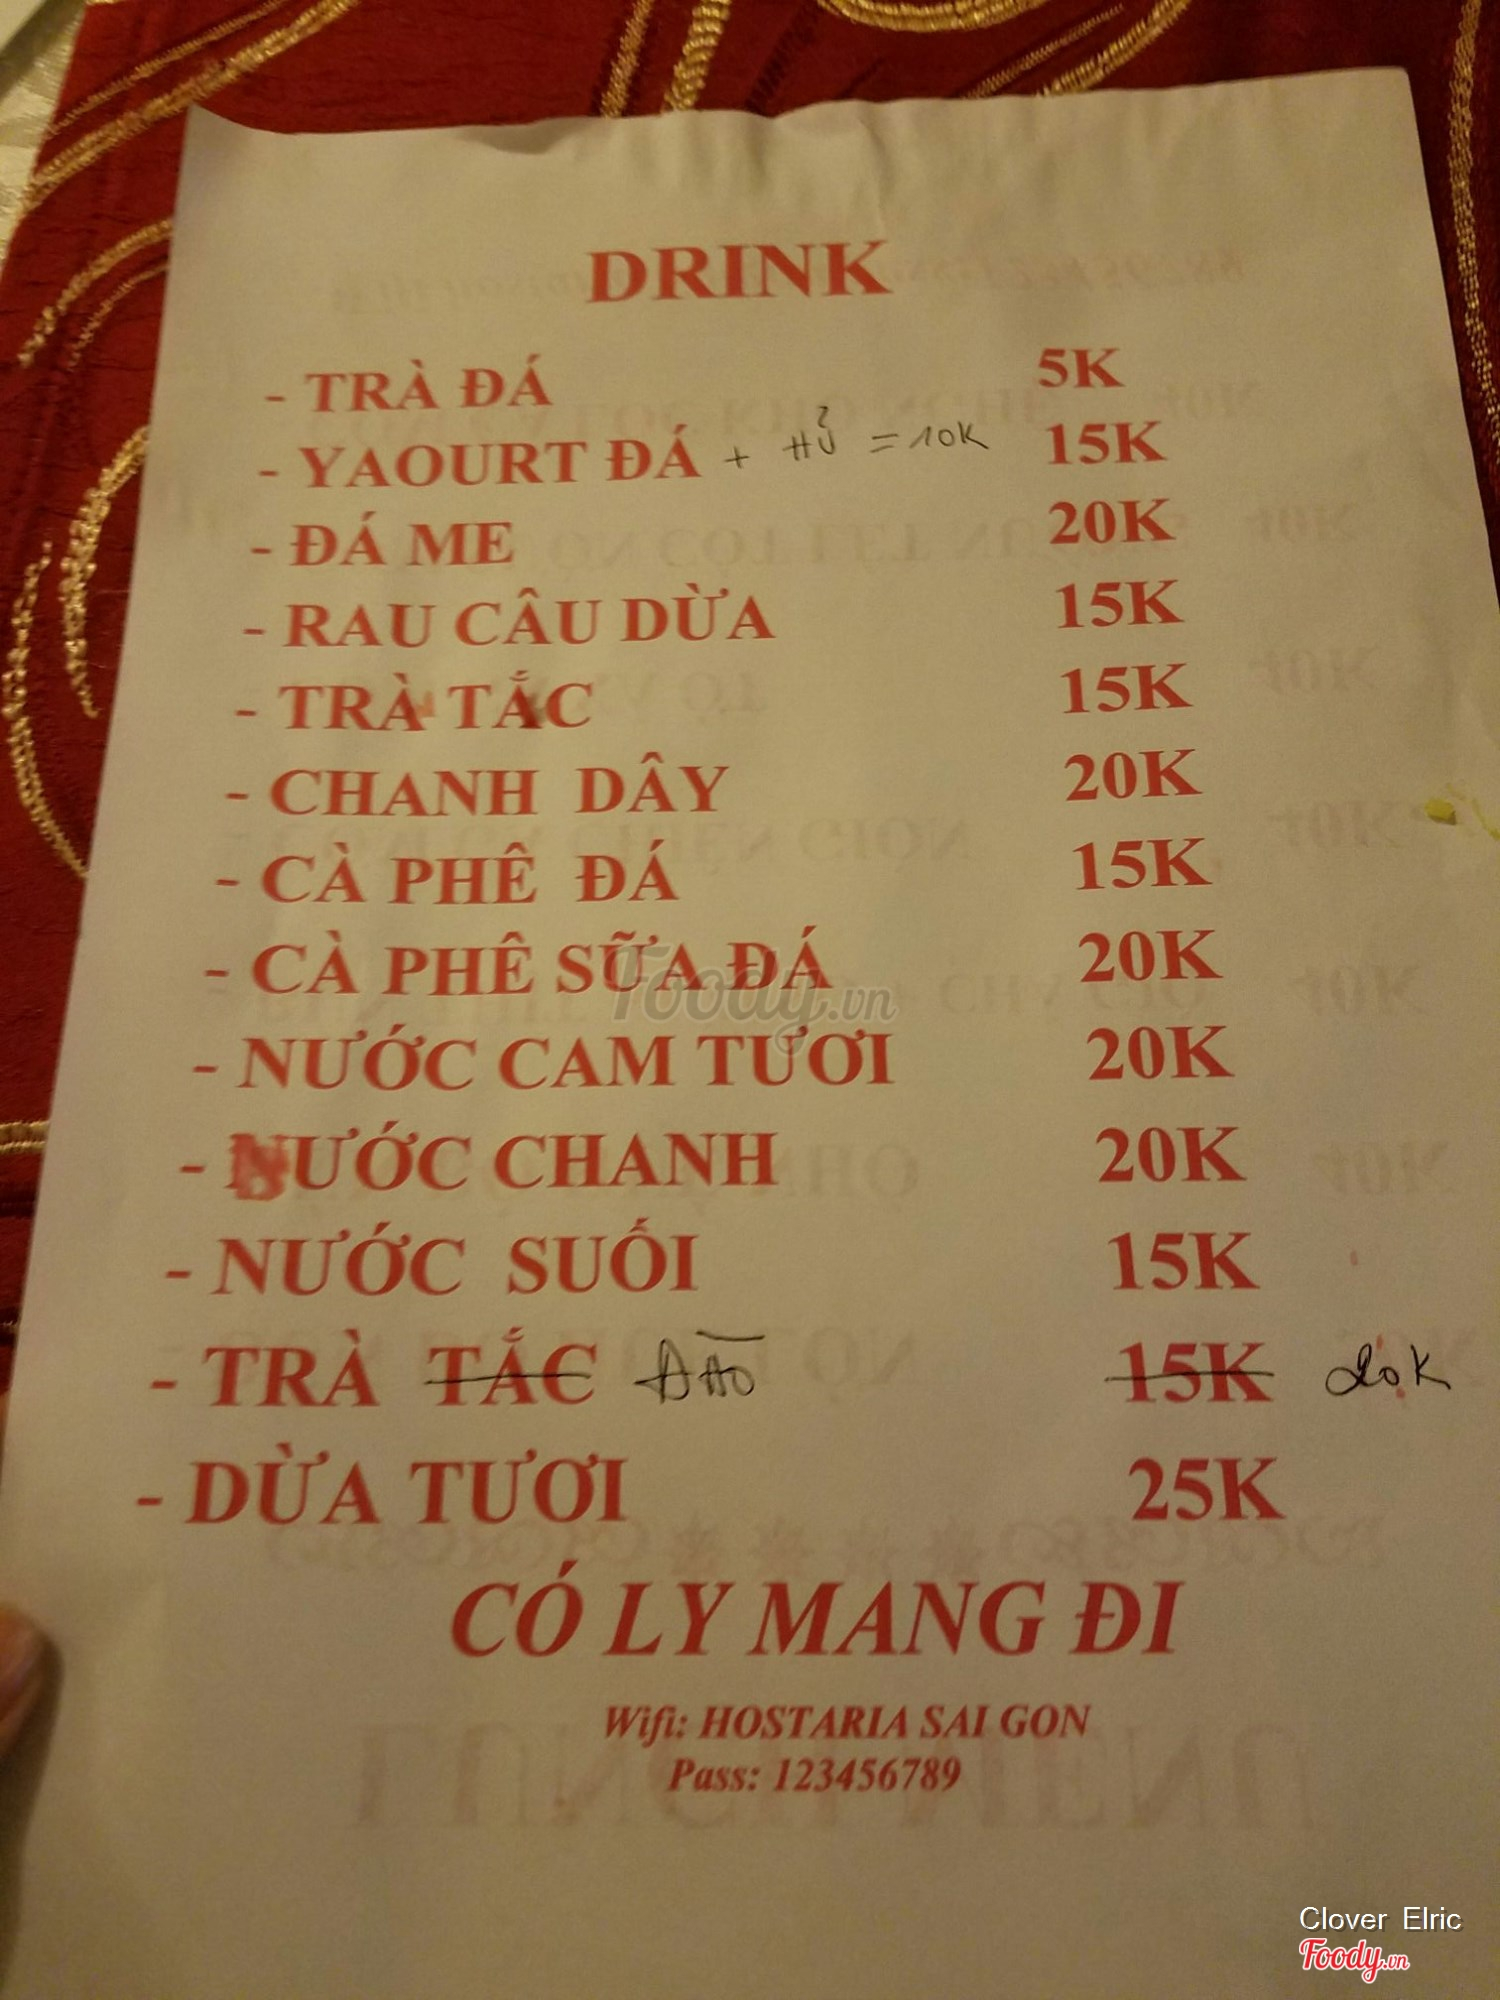 DRINK
- TRÀ ĐÁ 5K
- YAOURT ĐÁ + HỦ = 10K 15K
- ĐÁ ME 20K
- RAU CÂU DỪA 15K
- TRÀ TẮC 15K
- CHANH DÂY 20K
- CÀ PHÊ ĐÁ 15K
- CÀ PHÊ SỮA ĐÁ 20K
- NƯỚC CAM TƯƠI 20K
- NƯỚC CHANH 20K
- NƯỚC SUỐI 15K
- TRÀ TẮC ĐÀO 15K 20K
- DỪA TƯƠI 25K
CÓ LY MANG ĐI
Wifi: HOSTARIA SAI GON
Pass: 123456789
Foody.vn
Clover Elric
Foody.vn